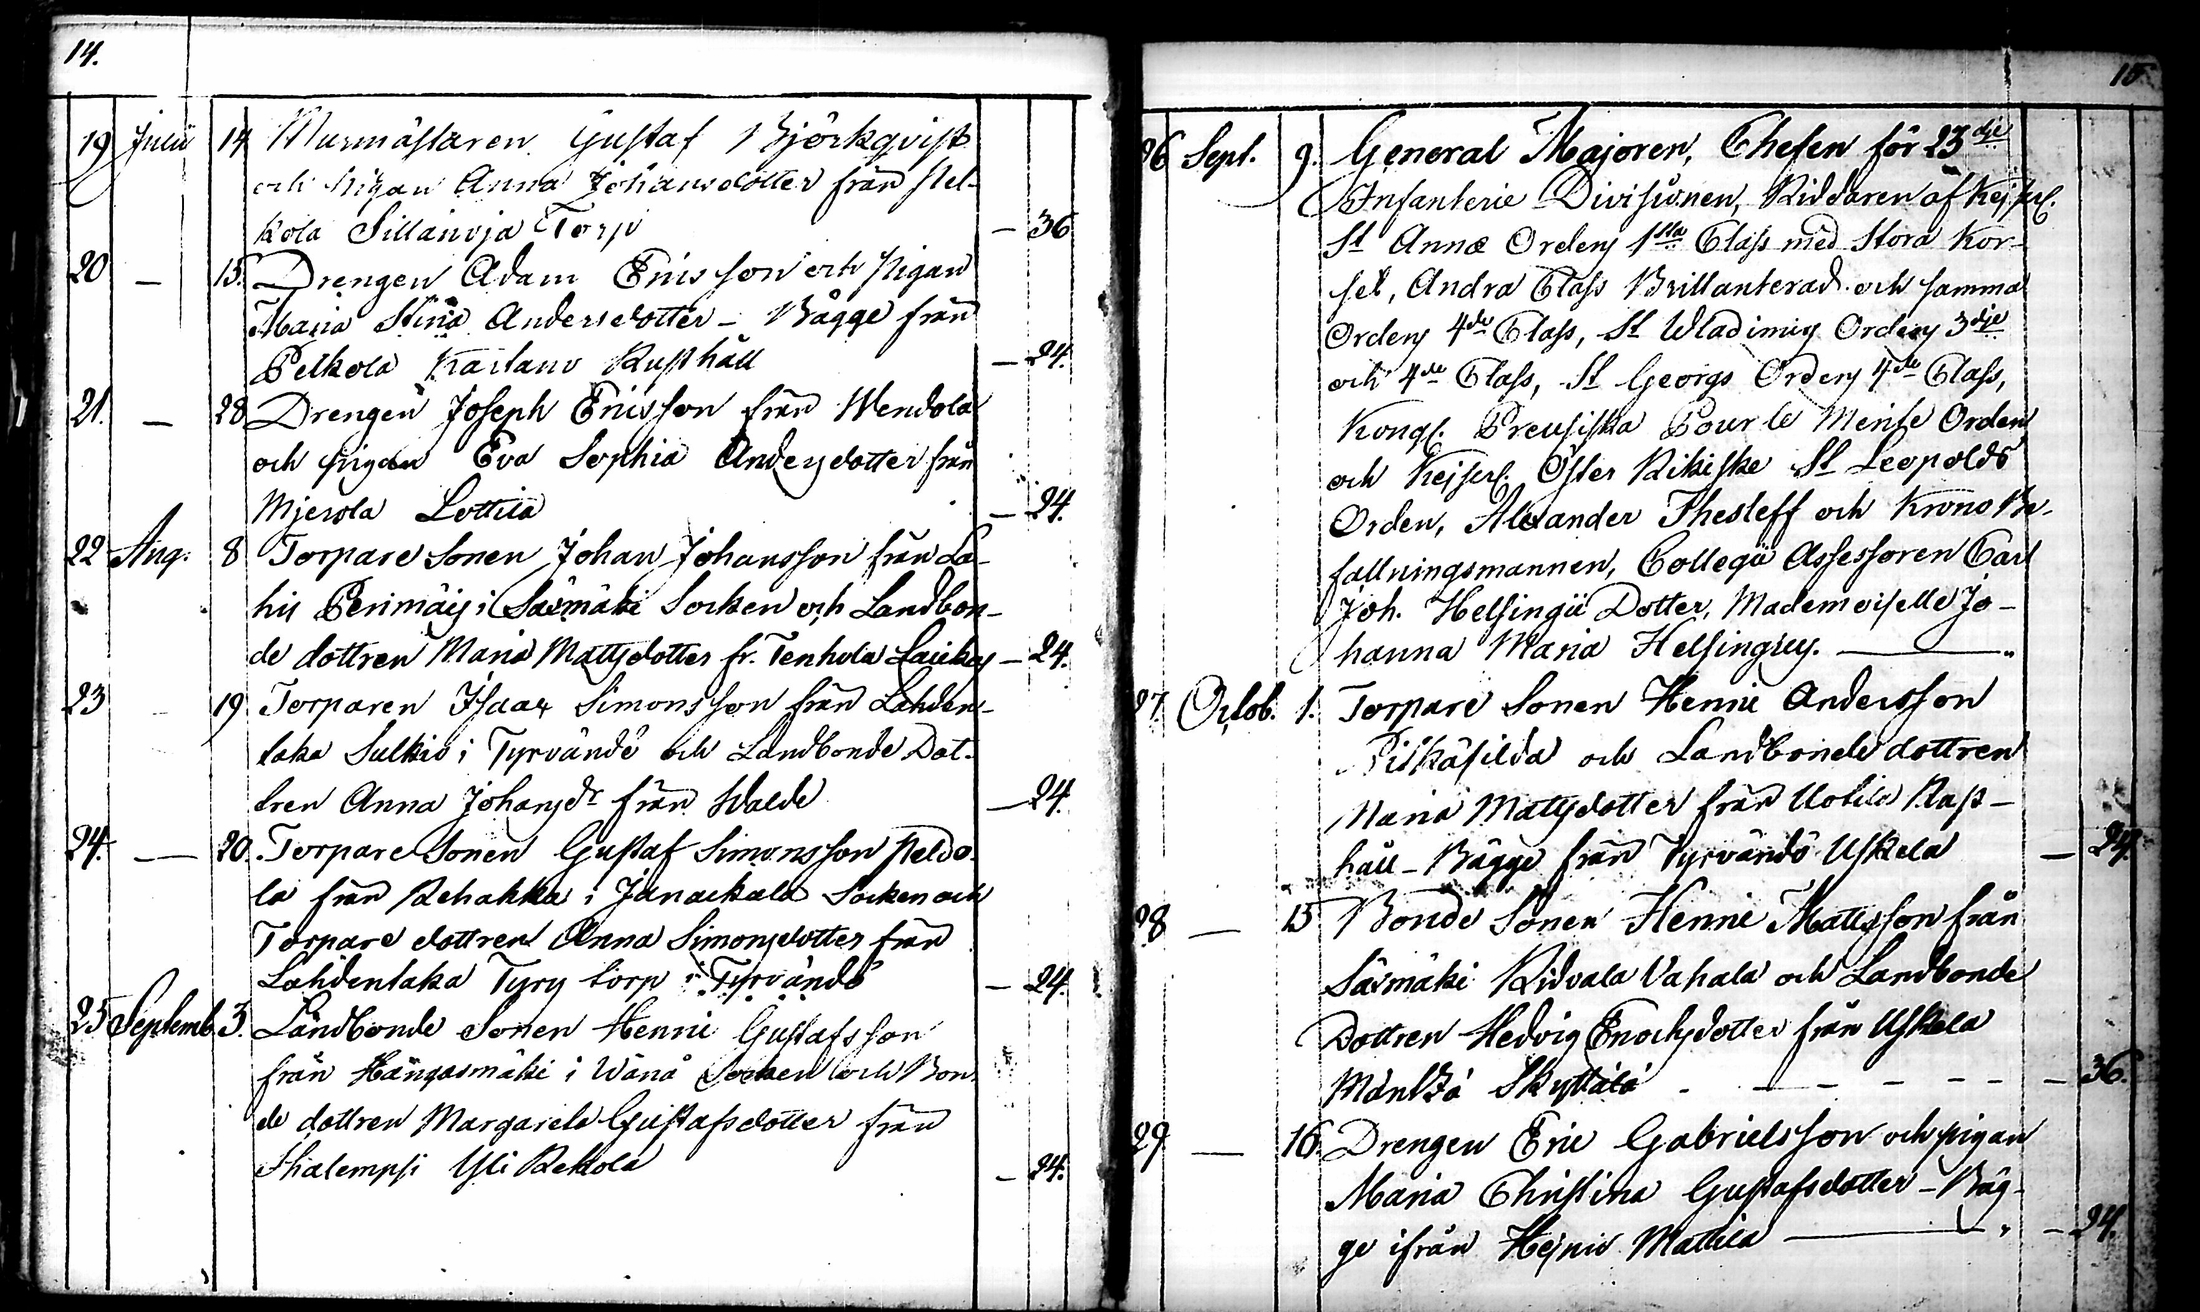 14.
19 Julii 14 Murmästaren Gustaf Björkqvist
och Pigan Anna Johansdotter från Pel-
kola Sillanoja Torp — 36
20 — 15. Drengen Adam Ericsson och Pigan
Maria Stina Andersdotter — Bägge från
Pelkola Kartano Rusthåll — 24.
21. — 28 Drengen Joseph Ericsson från Wendola
och pigan Eva Sophia Andersdotter från
Mjerola Lottila — 24.
22 Aug. 8 Torpare Sonen Johan Johansson från La-
his Perimäis i Säxmäki Socken och Landbon-
de dottren Maria Mattsdotter fr. Tenhola Laickos — 24.
23 19 Torparen Isaac Simonsson från Lahden-
taka Sulkio i Tyrvändö och Landbonde Dot-
tren Anna Johansdr från Walde — 24.
24. — 20. Torpare Sonen Gustaf Simonsson Peldo-
la från Rehakka i Janackala Socken och
Torpare dottren Anna Simonsdotter från
Lahdentaka Tyry torp i Tyrvändö — 24.
25 Septemb. 3. Landbonde Sonen Henric Gustafsson
från Hängasmäki i Wånå Socken och Bon-
de dottren Margareta Gustafsdotter från
Ihalempsi Yli Rekola — 24.
15
26 Sept. 9. General Majoren, Chefen för 23dje
Infanterie Divisionen, Riddaren af Kejserl.
St Annæ Ordens 1sta Class med Stora Kor-
set, Andra Class Brillanterad och samma
Ordens 4de Class, St Wladimirs Ordens 3dje
och 4de Class, St Georgs Ordens 4de Class,
Kongl. Preusiska Pour le Merite Orden
och Kejserl. Öster Rikiske St Leopolds
Orden, Alexander Thesleff och Krono Be-
fallningsmannen, Collegii Assessoren Carl
Joh. Helsingii Dotter, Mademoiselle Jo-
hanna Maria Helsingius. — „
27. Octob. 1. Torpare Sonen Henric Andersson
Pitkäsilda och Landbonde dottren
Maria Mattsdotter från Uotila Rust-
håll — Bägge från Tyrvändö Uskela — 24.
28 — 15 Bonde Sonen Henric Mattsson från
Säxmäki Ridvala Vahala och Landbonde
Dottren Hedvig Enochsdotter från Uskela
Mäntzä Skyttälä - — - - - - — 36.
29 — 16. Drengen Eric Gabrielsson och pigan
Maria Christina Gustafsdotter — Bäg-
ge ifrån Hejnio Mattila — „ — 24.